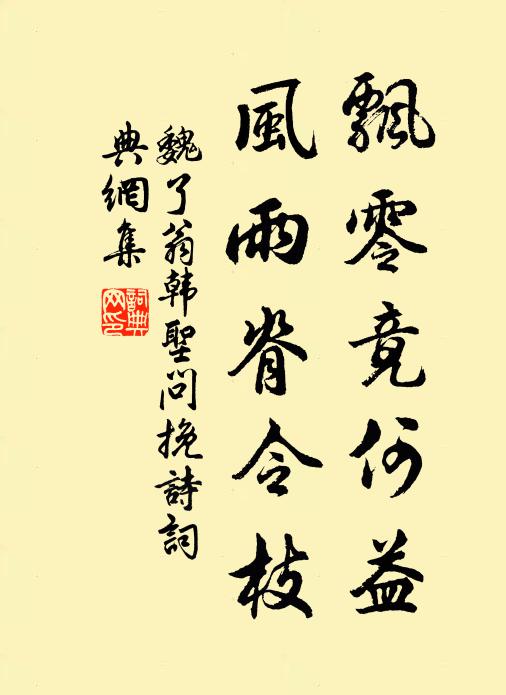 飄零竟何益
風雨脊令枝
魏了翁韩聖問挽詩詞
典網集
詞典網印